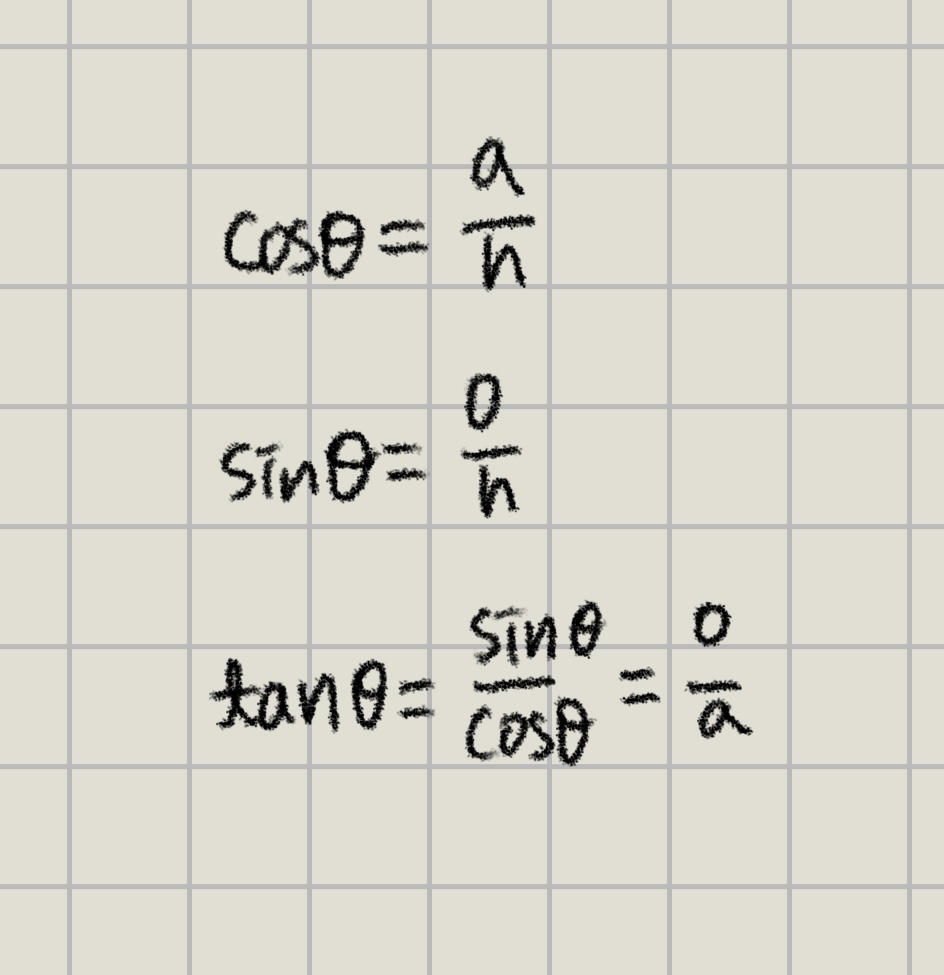 cosθ = a/h
sinθ = o/h
tanθ = sinθ/cosθ = o/a